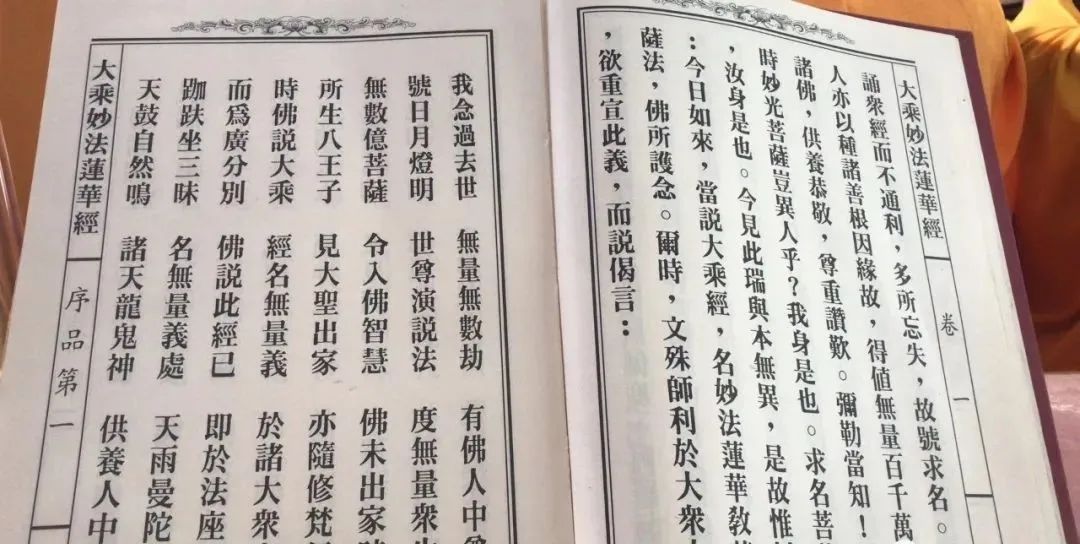 大乘妙法蓮華經 卷一
誦衆經而不通利，多所忘失，故號求名。
人亦以種諸善根因緣故，得值無量百千萬
諸佛，供養恭敬，尊重讚歎。彌勒當知！
時妙光菩薩豈異人乎？我身是也。求名菩
，汝身是也。今見此瑞與本無異，是故惟
：今日如來，當説大乘經，名妙法蓮華教
薩法，佛所護念。爾時，文殊師利於大衆
，欲重宣此義，而説偈言：
我念過去世 無量無數劫 有佛人中
號日月燈明 世尊演説法 度無量衆
無數億菩薩 令入佛智慧 佛未出家
所生八王子 見大聖出家 亦隨修梵
時佛説大乘 經名無量義 於諸大衆
而爲廣分別 佛説此經已 即於法座
跏趺坐三昧 名無量義處 天雨曼陀
天鼓自然鳴 諸天龍鬼神 供養人中
大乘妙法蓮華經 序品第一